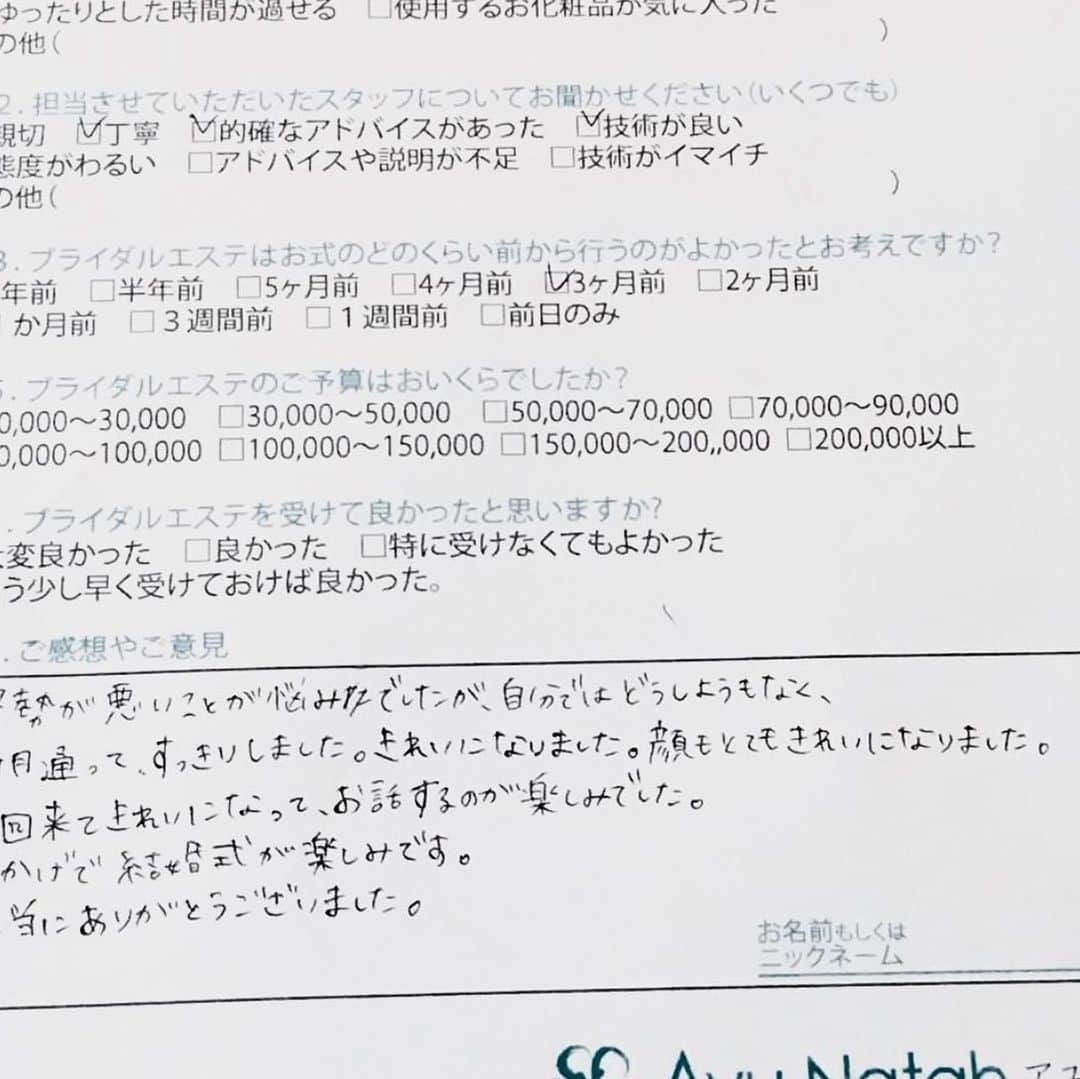 ゆったりとした時間が過せる □使用するお化粧品が気に入った
の他( )
2.担当させていただいたスタッフについてお聞かせください(いくつでも)
親切 ☑丁寧 ☑的確なアドバイスがあった ☑技術が良い
態度がわるい □アドバイスや説明が不足 □技術がイマイチ
の他( )
3.ブライダルエステはお式のどのくらい前から行うのがよかったとお考えですか?
年前 □半年前 □5ヶ月前 □4ヶ月前 ☑3ヶ月前 □2ヶ月前
か月前 □3週間前 □1週間前 □前日のみ
.ブライダルエステのご予算はおいくらでしたか?
0,000～30,000 □30,000～50,000 □50,000～70,000 □70,000～90,000
0,000～100,000 □100,000～150,000 □150,000～200,,000 □200,000以上
.ブライダルエステを受けて良かったと思いますか?
変良かった □良かった □特に受けなくてもよかった
う少し早く受けておけば良かった。
.ご感想やご意見
勢が悪いことが悩みでしたが、自分ではどうしようもなく、
月通って、すっきりしました。きれいになりました。顔もとてもきれいになりました。
回来てきれいになって、お話するのが楽しみでした。
かげで結婚式が楽しみです。
当にありがとうございました。
お名前もしくは
ニックネーム
Ayu Natah